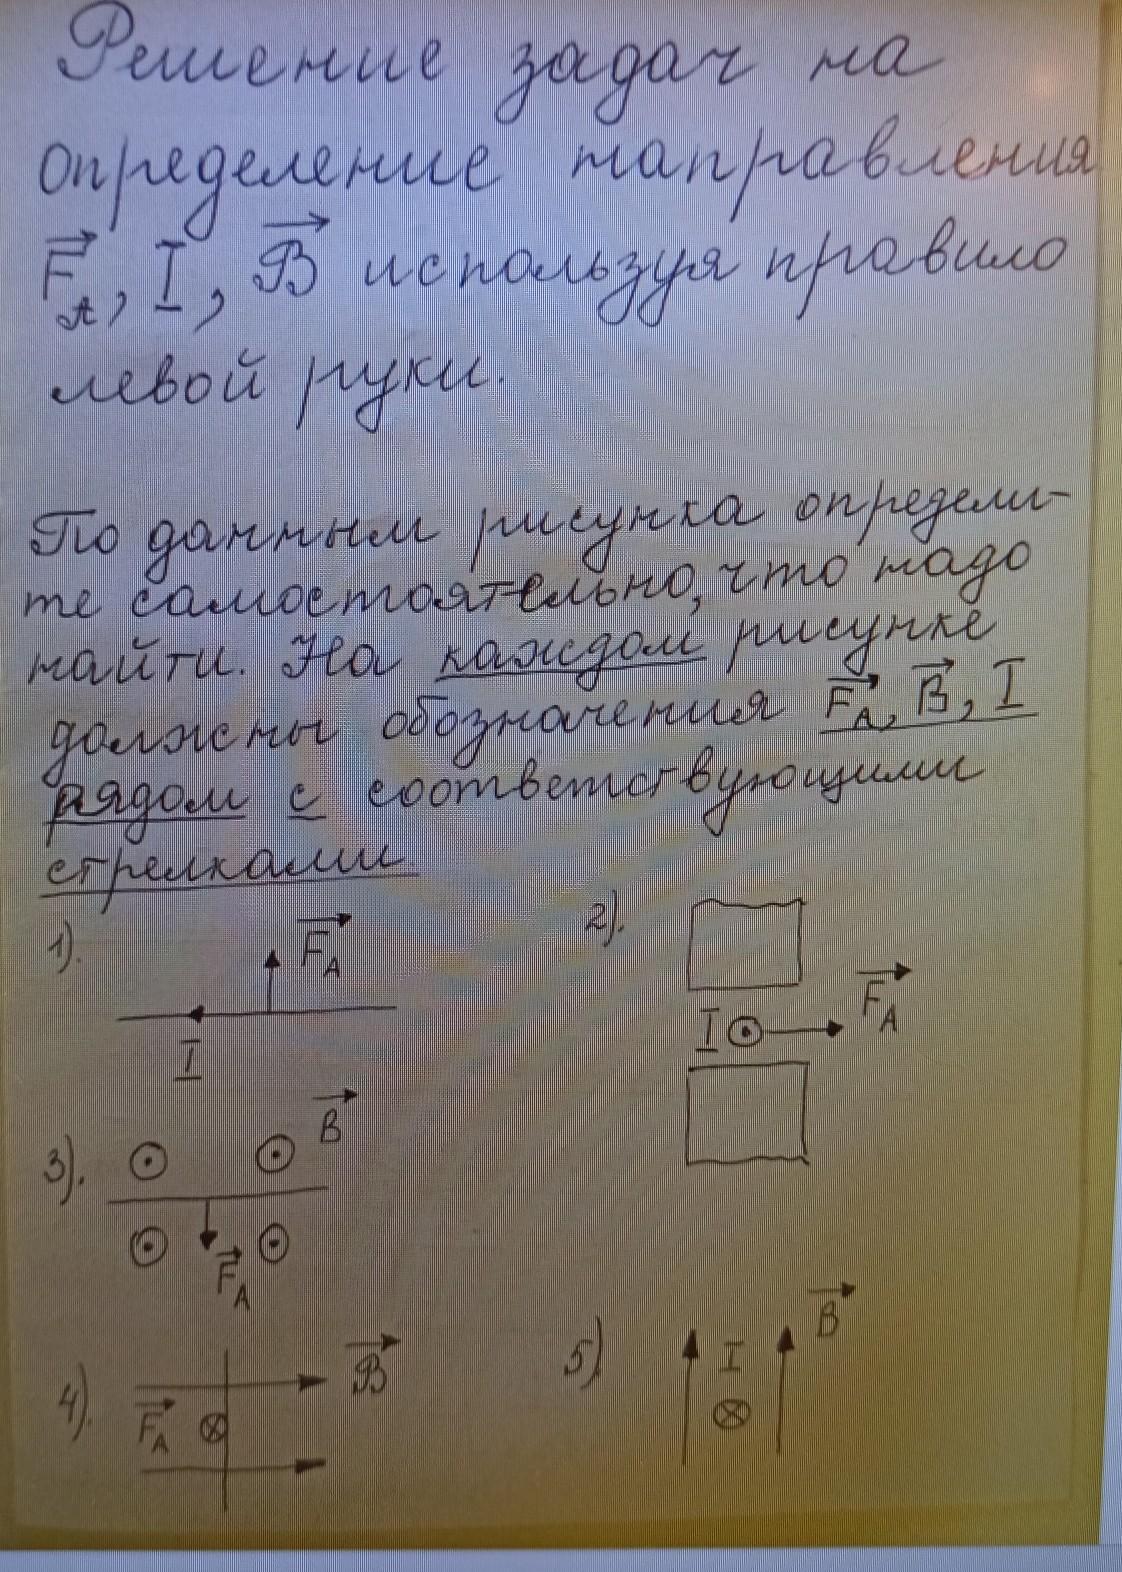 Решение задач на
определение направления
F⃗А, I, B⃗ используя правило
левой руки.
По данным рисунка определи-
те самостоятельно, что надо
найти. На каждом рисунке
должны обозначения F⃗А, B⃗, I
рядом с соответствующими
стрелками
1). F⃗А
I
2). F⃗А
I
3). B⃗
F⃗А
4). B⃗
F⃗А
5) I B⃗